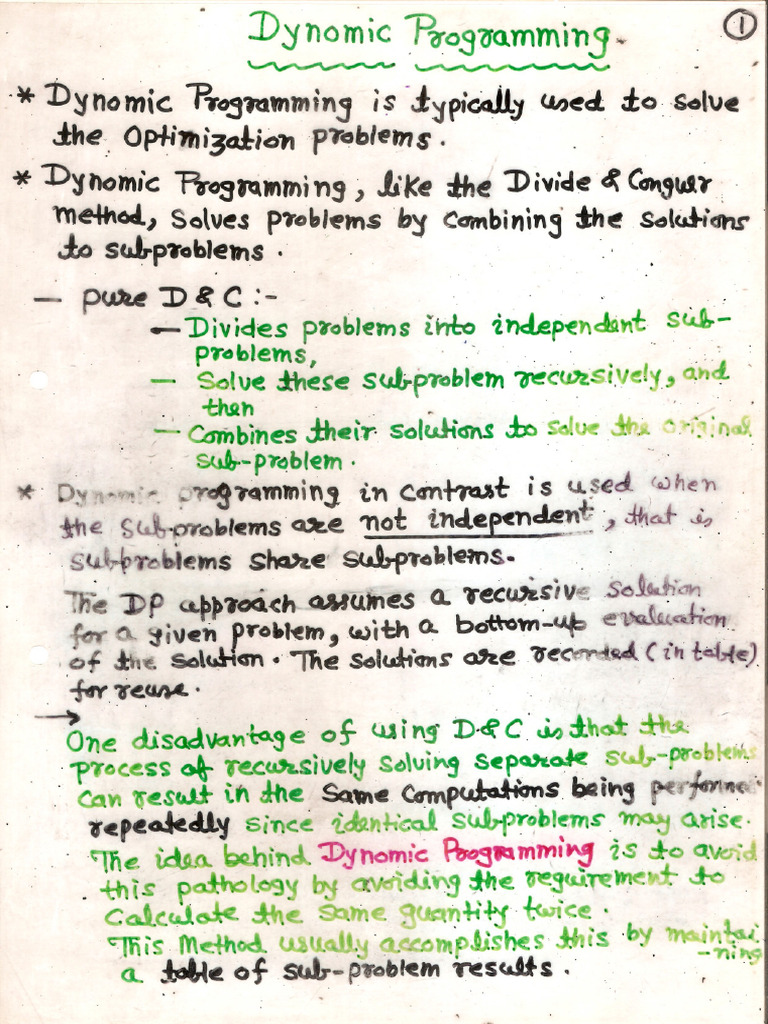 ①
Dynomic Programming.
* Dynomic Programming is typically used to solve
the Optimization problems.
* Dynomic Programming, like the Divide & Conquer
method, Solves problems by Combining the Solutions
to subproblems.
— pure D & C :-
— Divides problems into independent sub-
problems,
— Solve these subproblem recursively, and
then
— Combines their solutions to solve the original
sub-problem.
* Dynamic programming in Contrast is used when
the sub-problems are not independent, that is
subproblems share subproblems.
The DP approach assumes a recursive solution
for a given problem, with a bottom-up evaluation
of the solution. The solutions are recorded (in table)
for reuse.
→
One disadvantage of using D&C is that the
process of recursively solving separate sub-problems
can result in the Same Computations being performe
repeatedly since identical subproblems may arise.
The idea behind Dynomic Programming is to avoid
this pathology by avoiding the requirement to
Calculate the same quantity twice.
This Method usually accomplishes this by maintai
-ning
a table of sub-problem results.